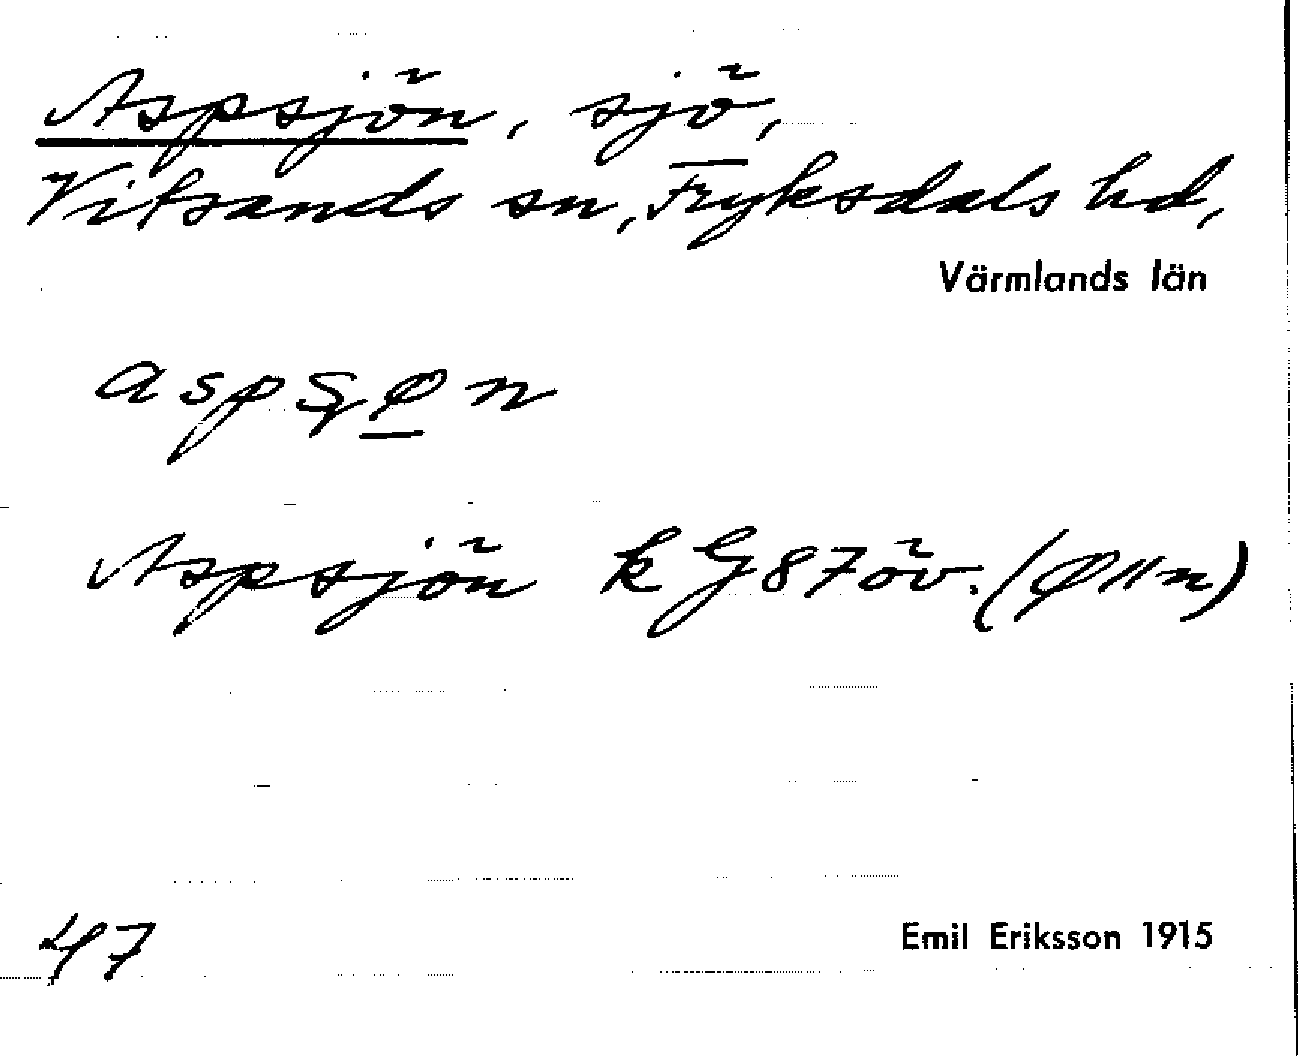 Aspsjön, sjö,
Vitsands sn, Fryksdals hd,
Värmlands län
aspȿø̱n
Aspsjön k G 87 öv. (Ø 11 n)
47
Emil Eriksson 1915